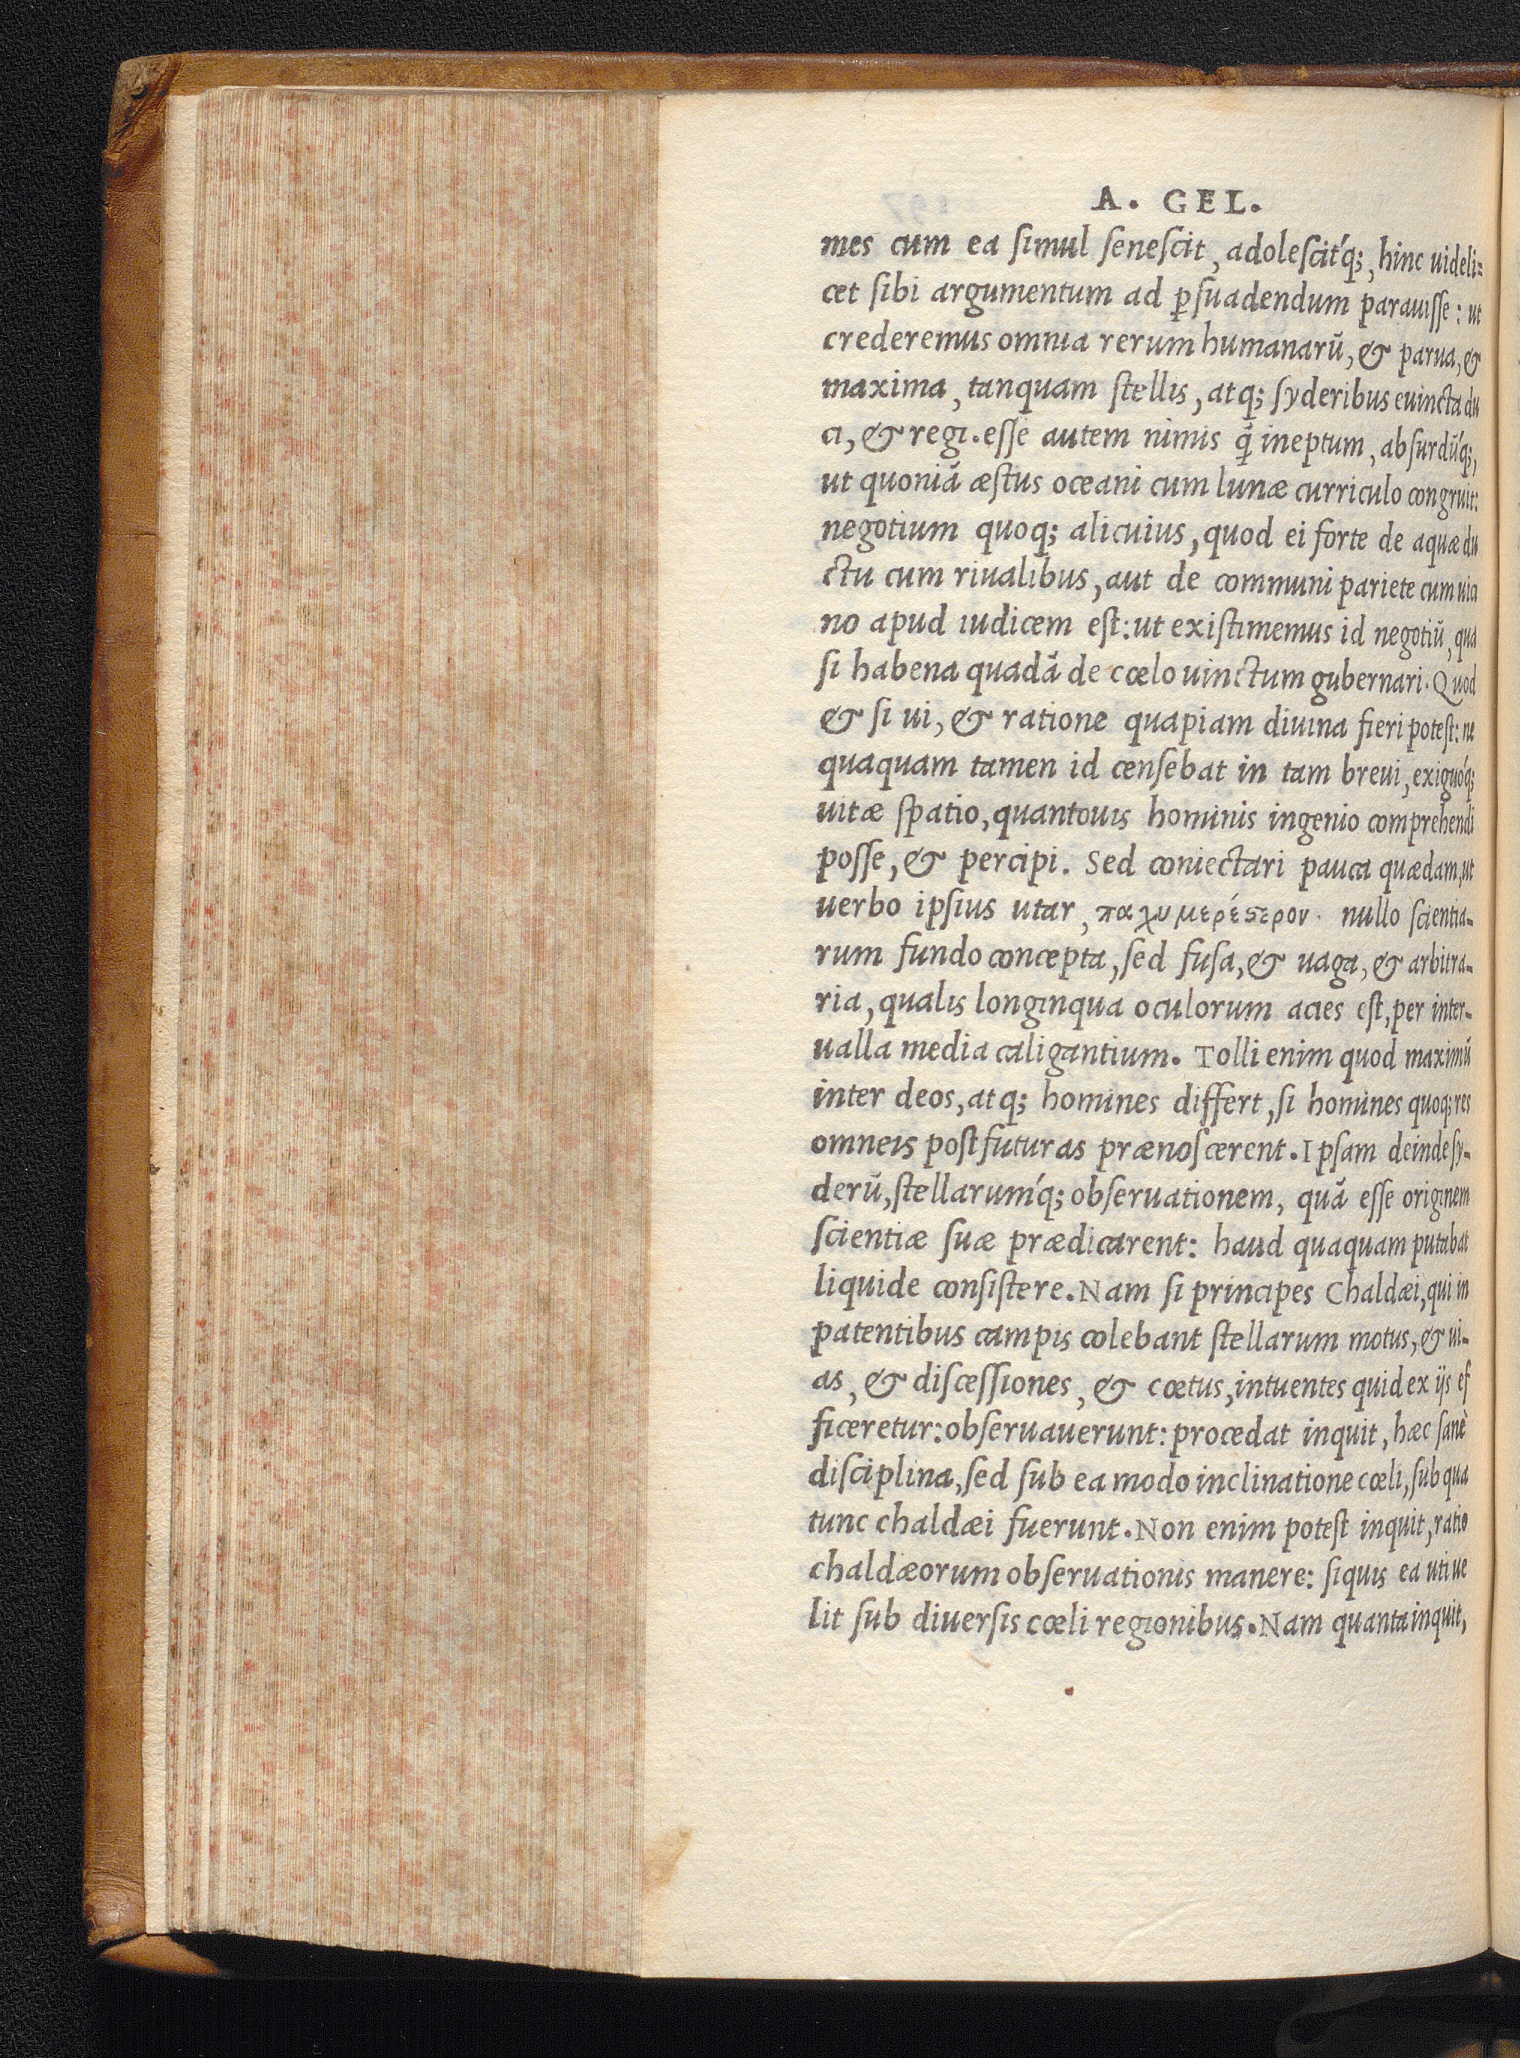 A. GEL.
mes cum ea ſimul ſeneſcit, adoleſcit́q;, hinc uideli=
cet ſibi argumentum ad ꝑſuadendum parauiſſe: ut
crederemus omnia rerum humanarũ, & parua, &
maxima, tanquam ſtellis, atq; ſyderibus euincta du
ci, & regi. eſſe autem nimis q̃ ineptum, abſurdṹq;,
ut quoniã æſtus oceani cum lunæ curriculo congruit:
negotium quoq; alicuius, quod ei forte de aquæ du
ctu cum riualibus, aut de communi pariete cum uici
no apud iudicem eſt: ut exiſtimemus id negotiũ, qua
ſi habena quadã de cœlo uinctum gubernari. Quod
& ſi ui, & ratione quapiam diuina fieri poteſt: ne
quaquam tamen id cenſebat in tam breui, exiguóq;
uitæ ſpatio, quantouis hominis ingenio comprehendi
poſſe, & percipi. Sed coniectari pauca quædam, ut
uerbo ipſius utar, παχυμερέϛερον. nullo ſcientia-
rum fundo concepta, ſed fuſa, & uaga, & arbitra-
ria, qualis longinqua oculorum acies eſt, per inter-
ualla media caligantium. Tolli enim quod maximũ
inter deos, atq; homines differt, ſi homines quoq; res
omneis poſt futuras prænoſcerent. Ipſam deinde ſy-
derũ, ſtellarumq́; obſeruationem, quã eſſe originem
ſcientiæ ſuæ prædicarent: haud quaquam putabat
liquide conſiſtere. Nam ſi principes Chaldæi, qui in
patentibus campis colebant ſtellarum motus, & ui-
as, & diſceſſiones, & cœtus, intuentes quid ex ijs ef
ficeretur: obſeruauerunt: procedat inquit, hæc ſanè
diſciplina, ſed ſub ea modo inclinatione cœli, ſub qua
tunc chaldæi fuerunt. Non enim poteſt inquit, ratio
chaldæorum obſeruationis manere: ſiquis ea uti ue
lit ſub diuerſis cœli regionibus. Nam quanta inquit,